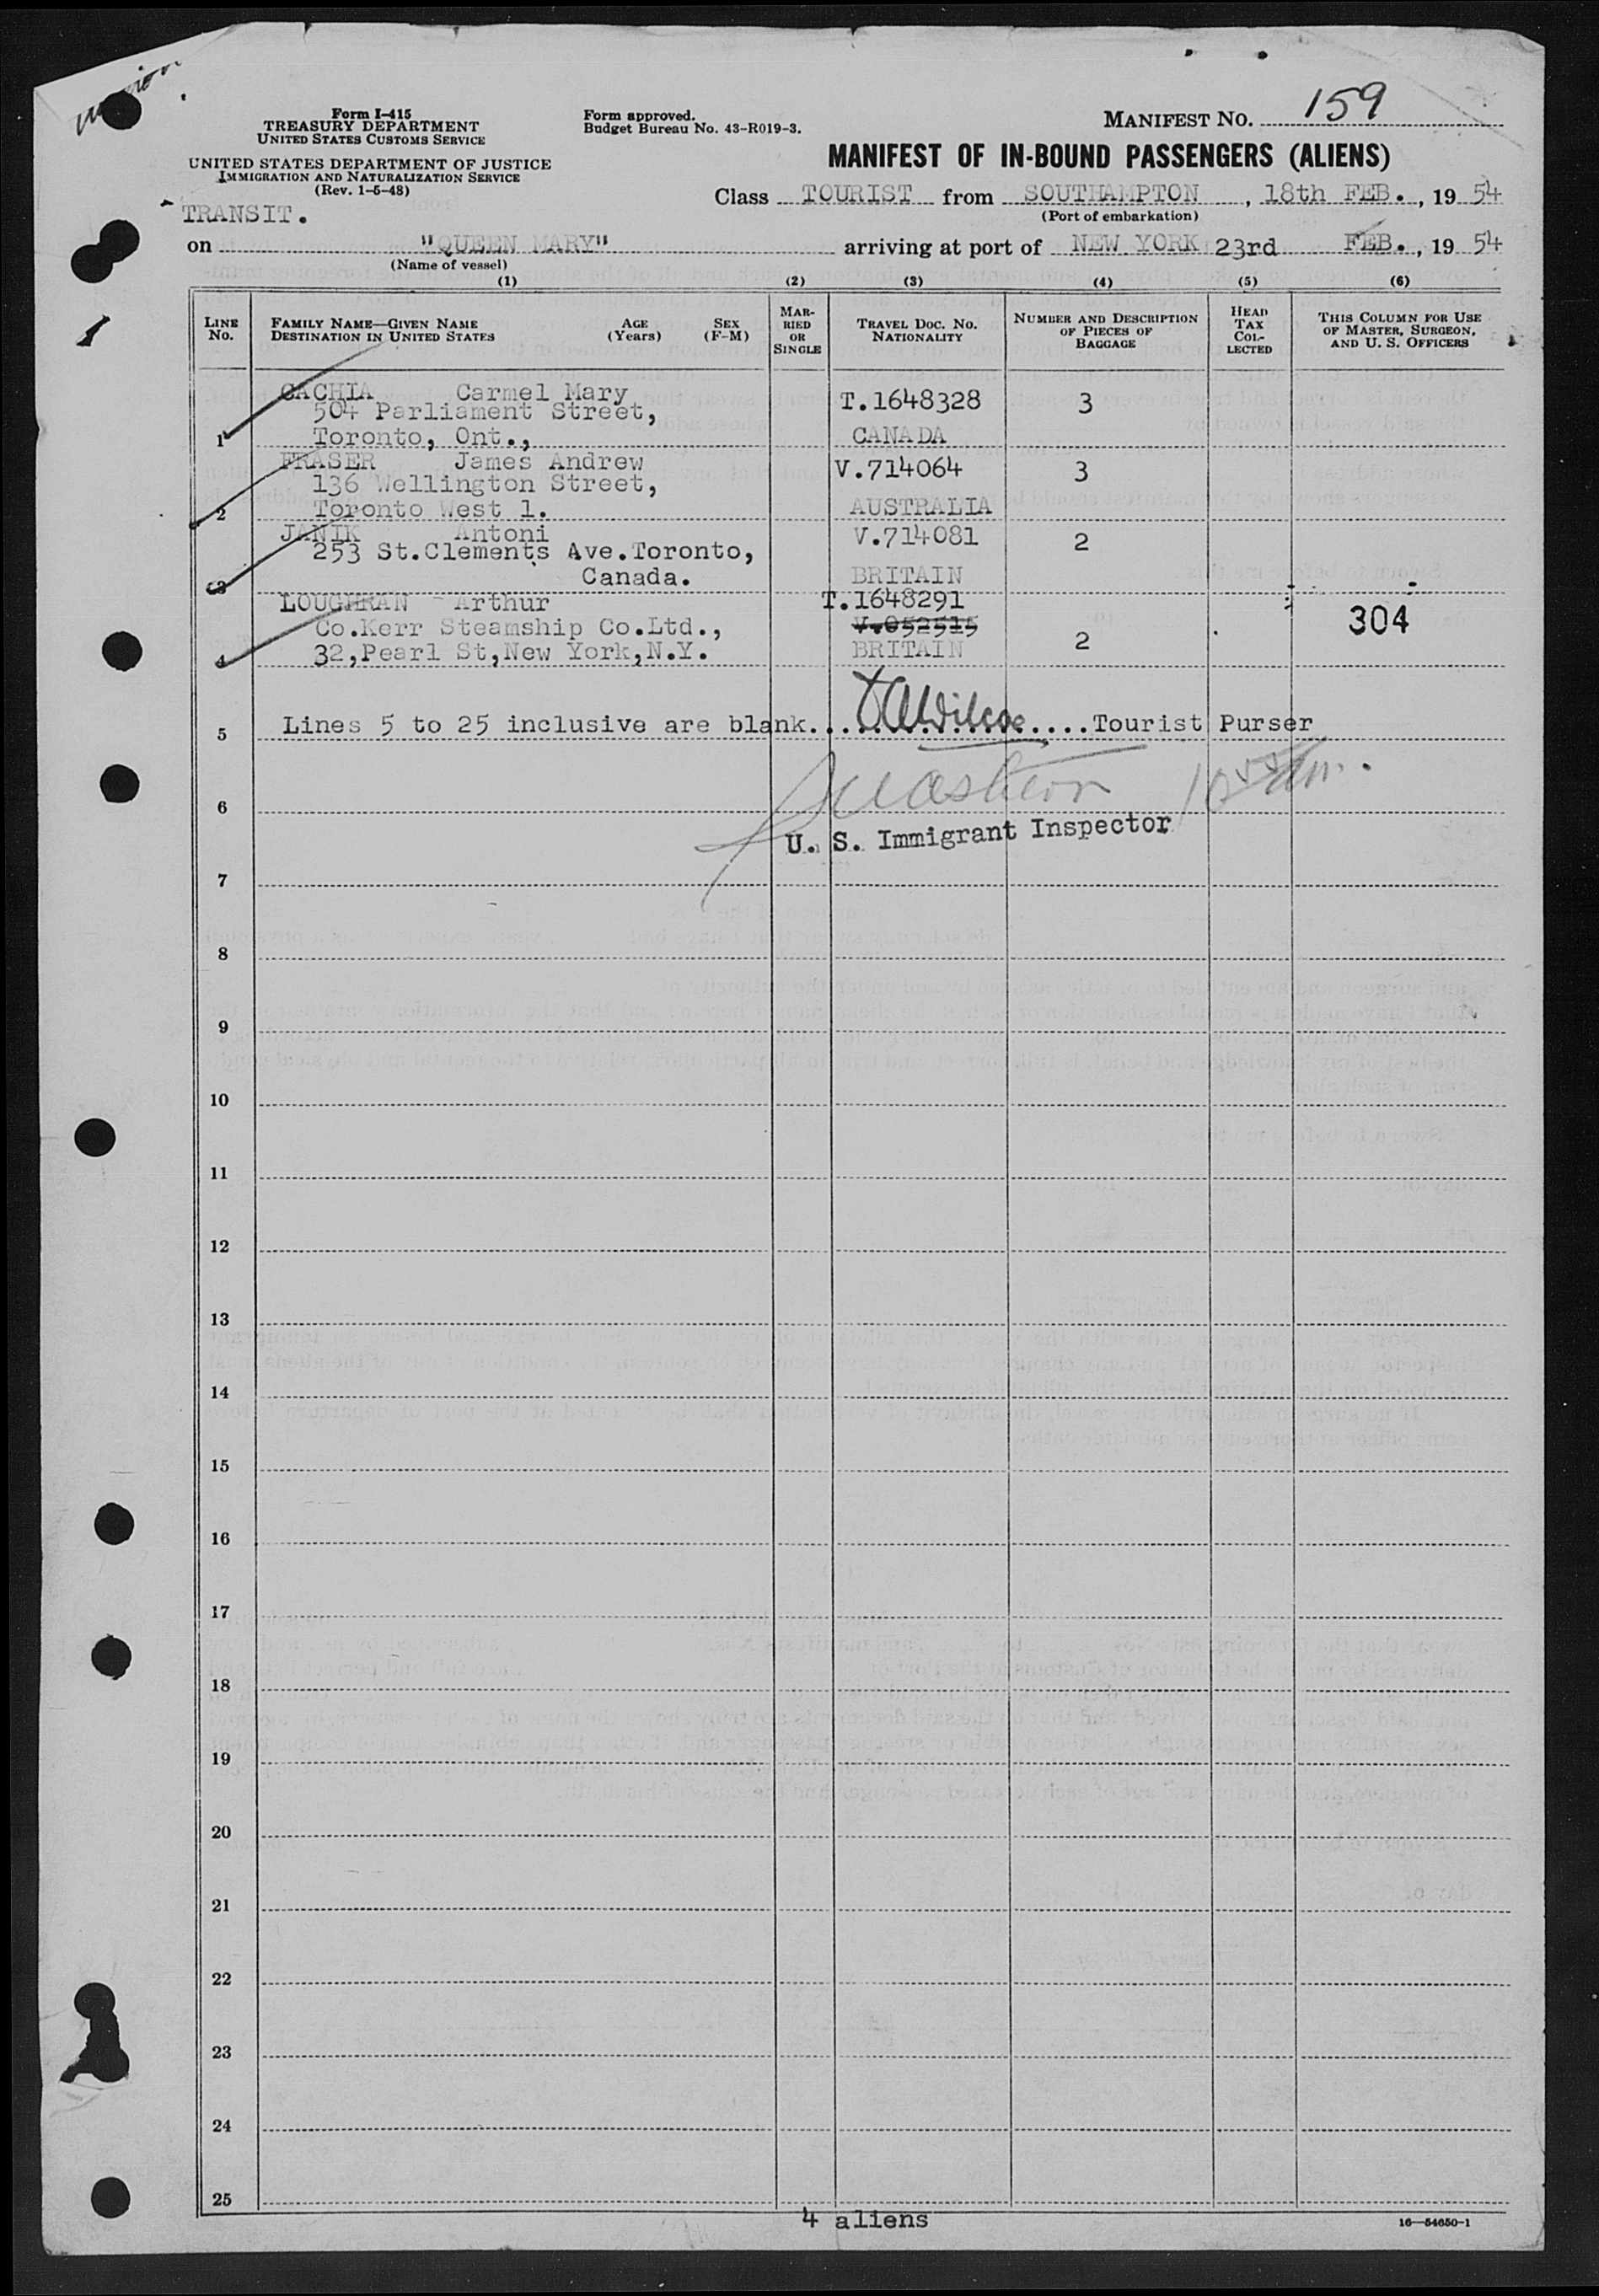 Form I-415
TREASURY DEPARTMENT
UNITED STATES CUSTOMS SERVICE
UNITED STATES DEPARTMENT OF JUSTICE
IMMIGRATION AND NATURALIZATION SERVICE
(Rev. 1-5-48)
Form approved.
Budget Bureau No. 43-R019-3.
MANIFEST NO. 159
MANIFEST OF IN-BOUND PASSENGERS (ALIENS)
Class TOURIST from SOUTHAMPTON, 18th FEB., 19 54
(Port of embarkation)
TRANSIT.
on "QUEEN MARY" arriving at port of NEW YORK 23rd FEB., 19 54
(Name of vessel)
(1) (2) (3) (4) (5) (6)
LINE NO.
FAMILY NAME—GIVEN NAME AGE SEX
DESTINATION IN UNITED STATES (Years) (F-M)
MAR-
RIED
OR
SINGLE
TRAVEL DOC. NO.
NATIONALITY
NUMBER AND DESCRIPTION
OF PIECES OF
BAGGAGE
HEAD
TAX
COL-
LECTED
THIS COLUMN FOR USE
OF MASTER, SURGEON,
AND U. S. OFFICERS
CACHIA Carmel Mary T.1648328 3
504 Parliament Street,
1 Toronto, Ont., CANADA
FRASER James Andrew V.714064 3
136 Wellington Street,
2 Toronto West 1. AUSTRALIA
JANIK Antoni V.714081 2
253 St.Clements Ave.Toronto,
3 Canada. BRITAIN
LOUGHRAN Arthur T.1648291 304
Co.Kerr Steamship Co.Ltd., V.052515
4 32,Pearl St,New York,N.Y. BRITAIN 2
5 Lines 5 to 25 inclusive are blank.... Wilcox ....Tourist Purser
6
U. S. Immigrant Inspector
7
8
9
10
11
12
13
14
15
16
17
18
19
20
21
22
23
24
25
4 aliens
16—54650-1